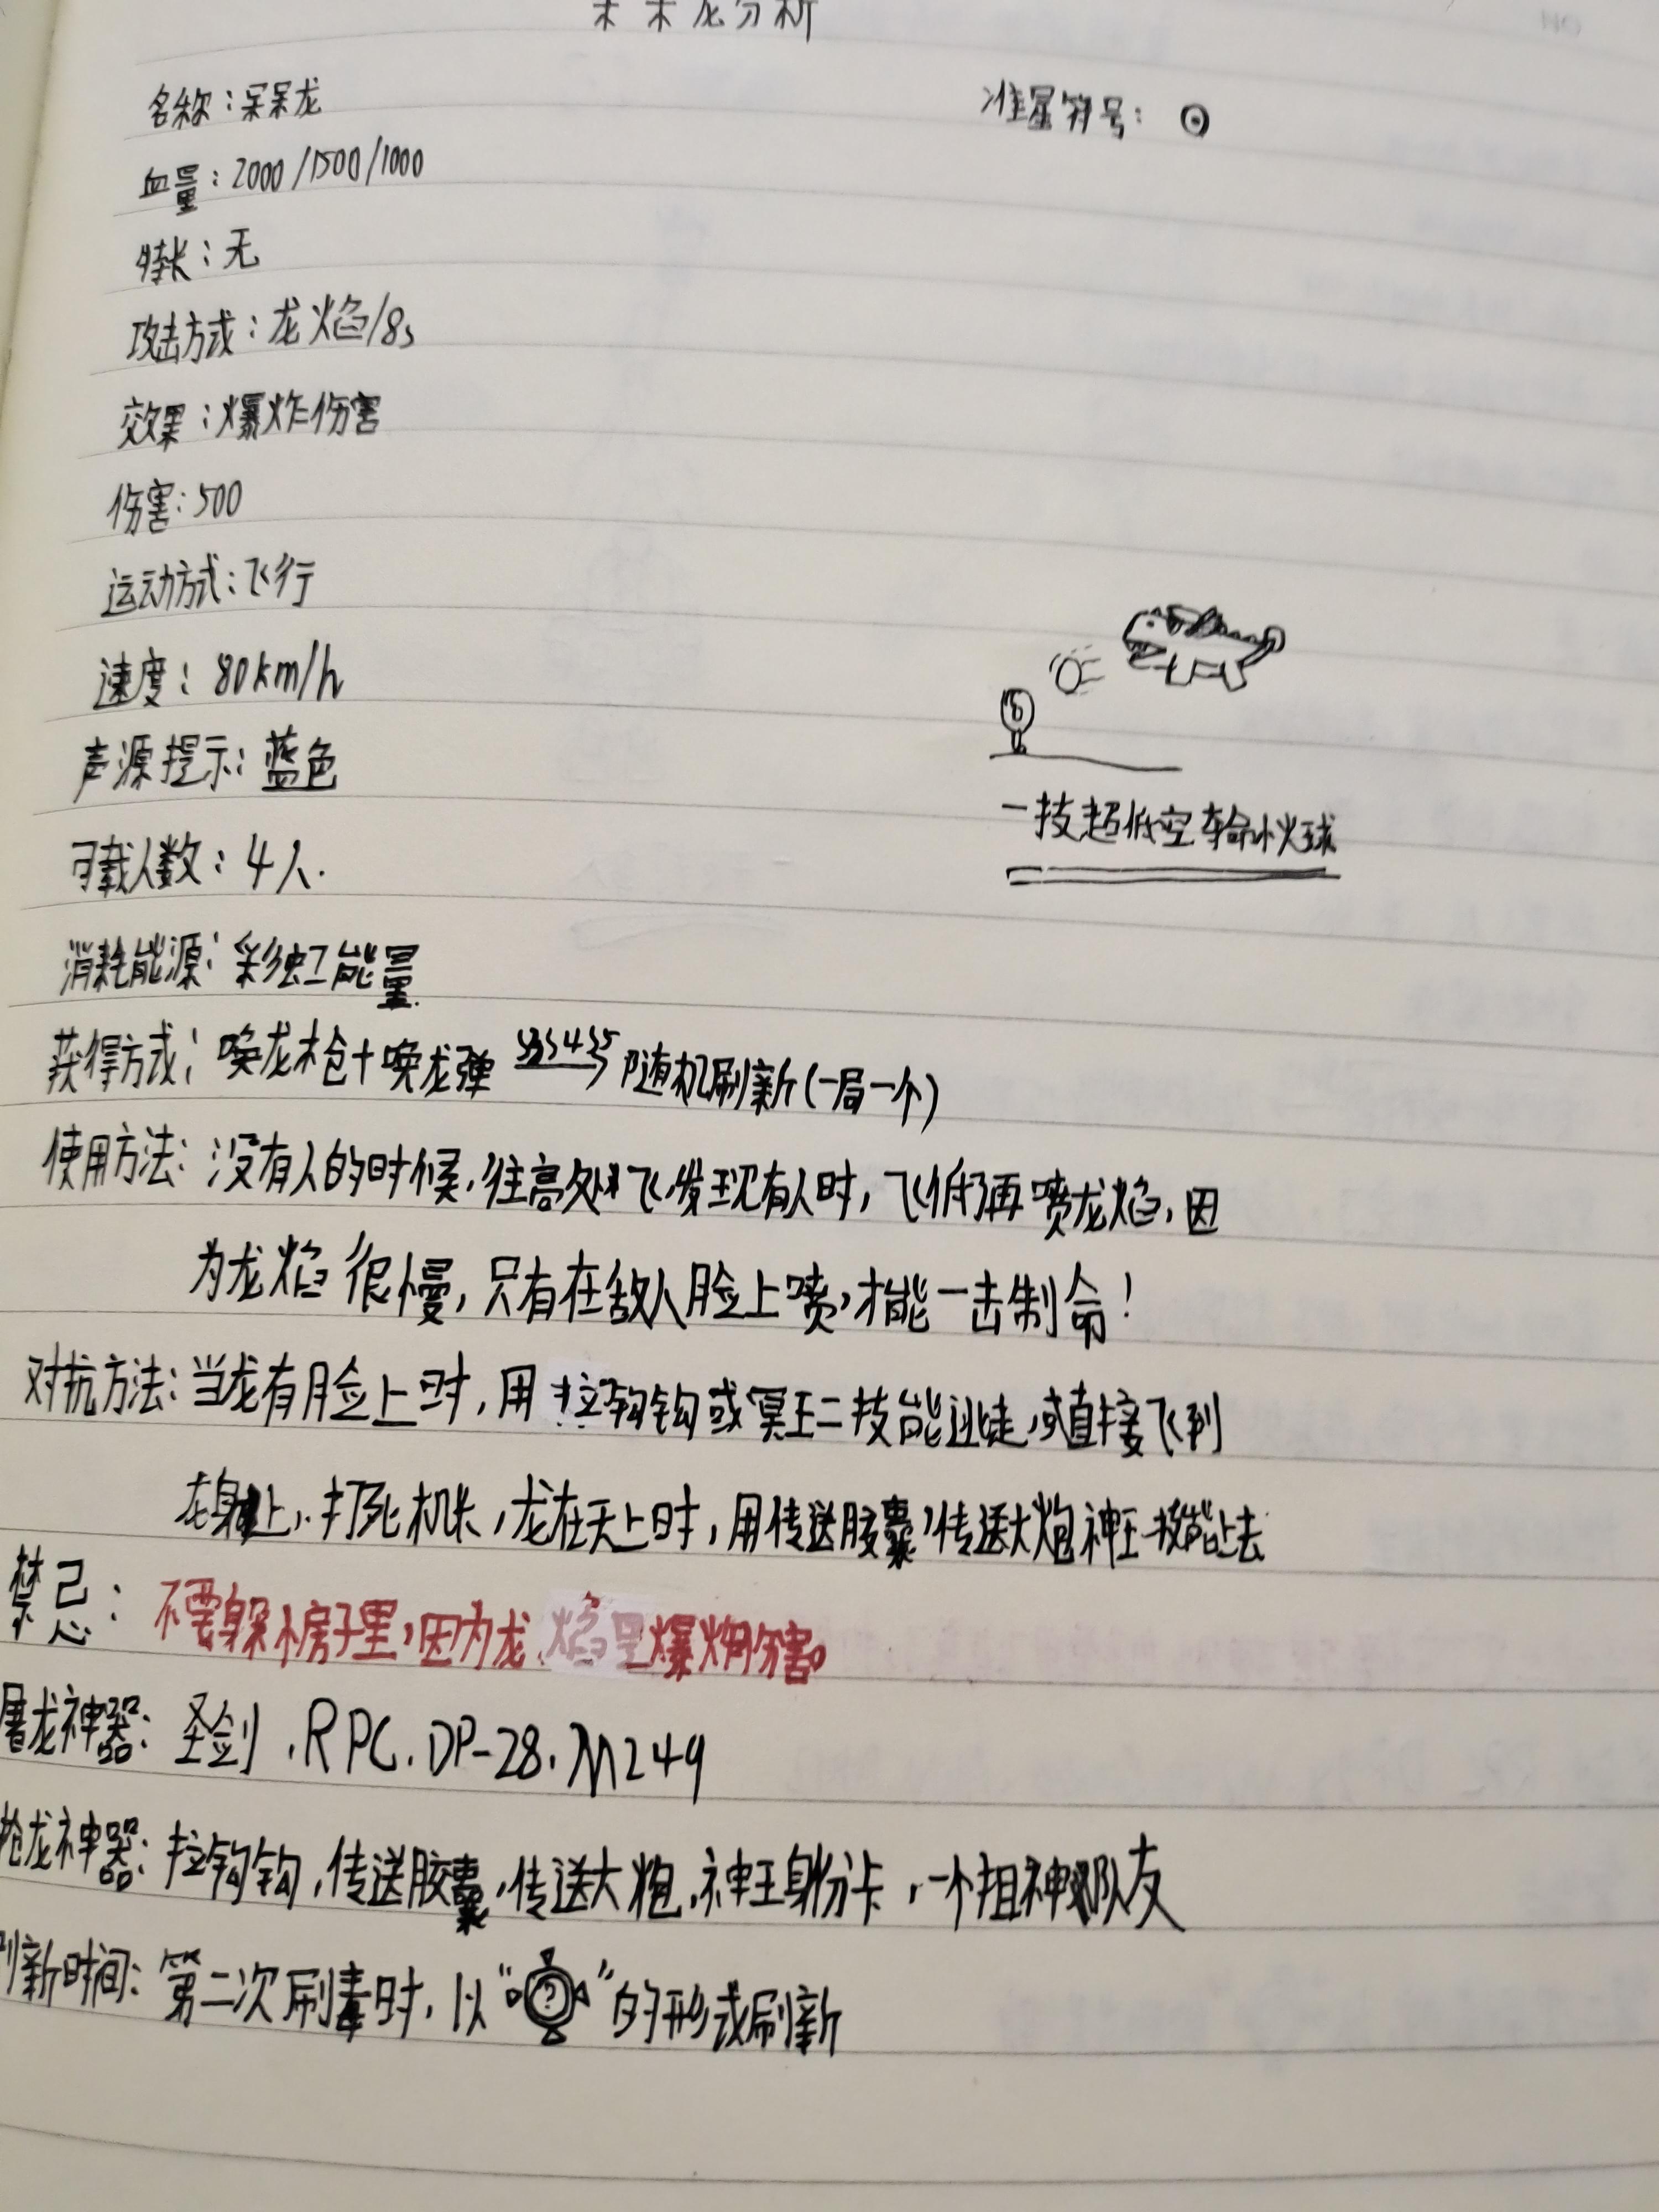 呆呆龙分析
名称：呆呆龙
准星符号：⊙
血量：2000/1500/1000
特长：无
攻击方式：龙焰/8s
效果：爆炸伤害
伤害：500
运动方式：飞行
速度：80km/h
声源提示：蓝色
一技超低空输出火球
可载人数：4人.
消耗能源：彩虹能量.
获得方式：唤龙枪+唤龙弹 随机刷新(一局一个)
使用方法：没有人的时候，往高处飞，发现有人时，飞低了再喷龙焰，因
为龙焰很慢，只有在敌人脸上喷，才能一击制命！
对抗方法：当龙有脸上时，用拉钩钩或冥王二技能逃走，或直接飞到
龙身上，打死机长，龙在天上时，用传送胶囊，传送大炮神王一技能上去
禁忌：不要躲小房子里，因为龙焰是爆炸伤害。
屠龙神器：圣剑.RPC.DP-28.M249
抢龙神器：拉钩钩，传送胶囊，传送大炮，神王身份卡，一个祖神队友
刷新时间：第二次刷毒时，以“？”的形式刷新